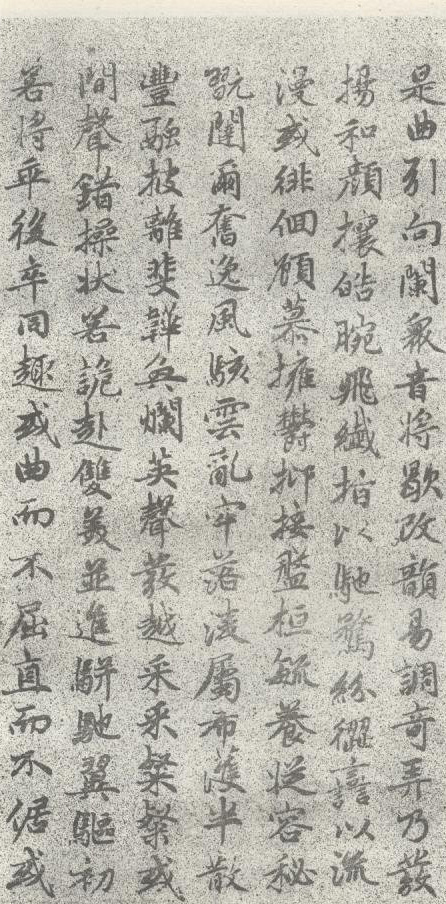 是曲引向闌衆音將歇改韻易調奇弄乃發
揚和顏攘皓腕飛纖指以馳騖紛㒊譶以流
漫或徘徊顧慕擁鬱抑按盤桓毓養從容秘
翫闥爾奮逸風駭雲亂牢落淩屬布濩半散
豐融披離斐韡奐爛英聲發越采采粲粲或
間聲錯糅狀若詭赴雙美並進駢馳翼驅初
若將乖後卒同趣或曲而不屈直而不倨或